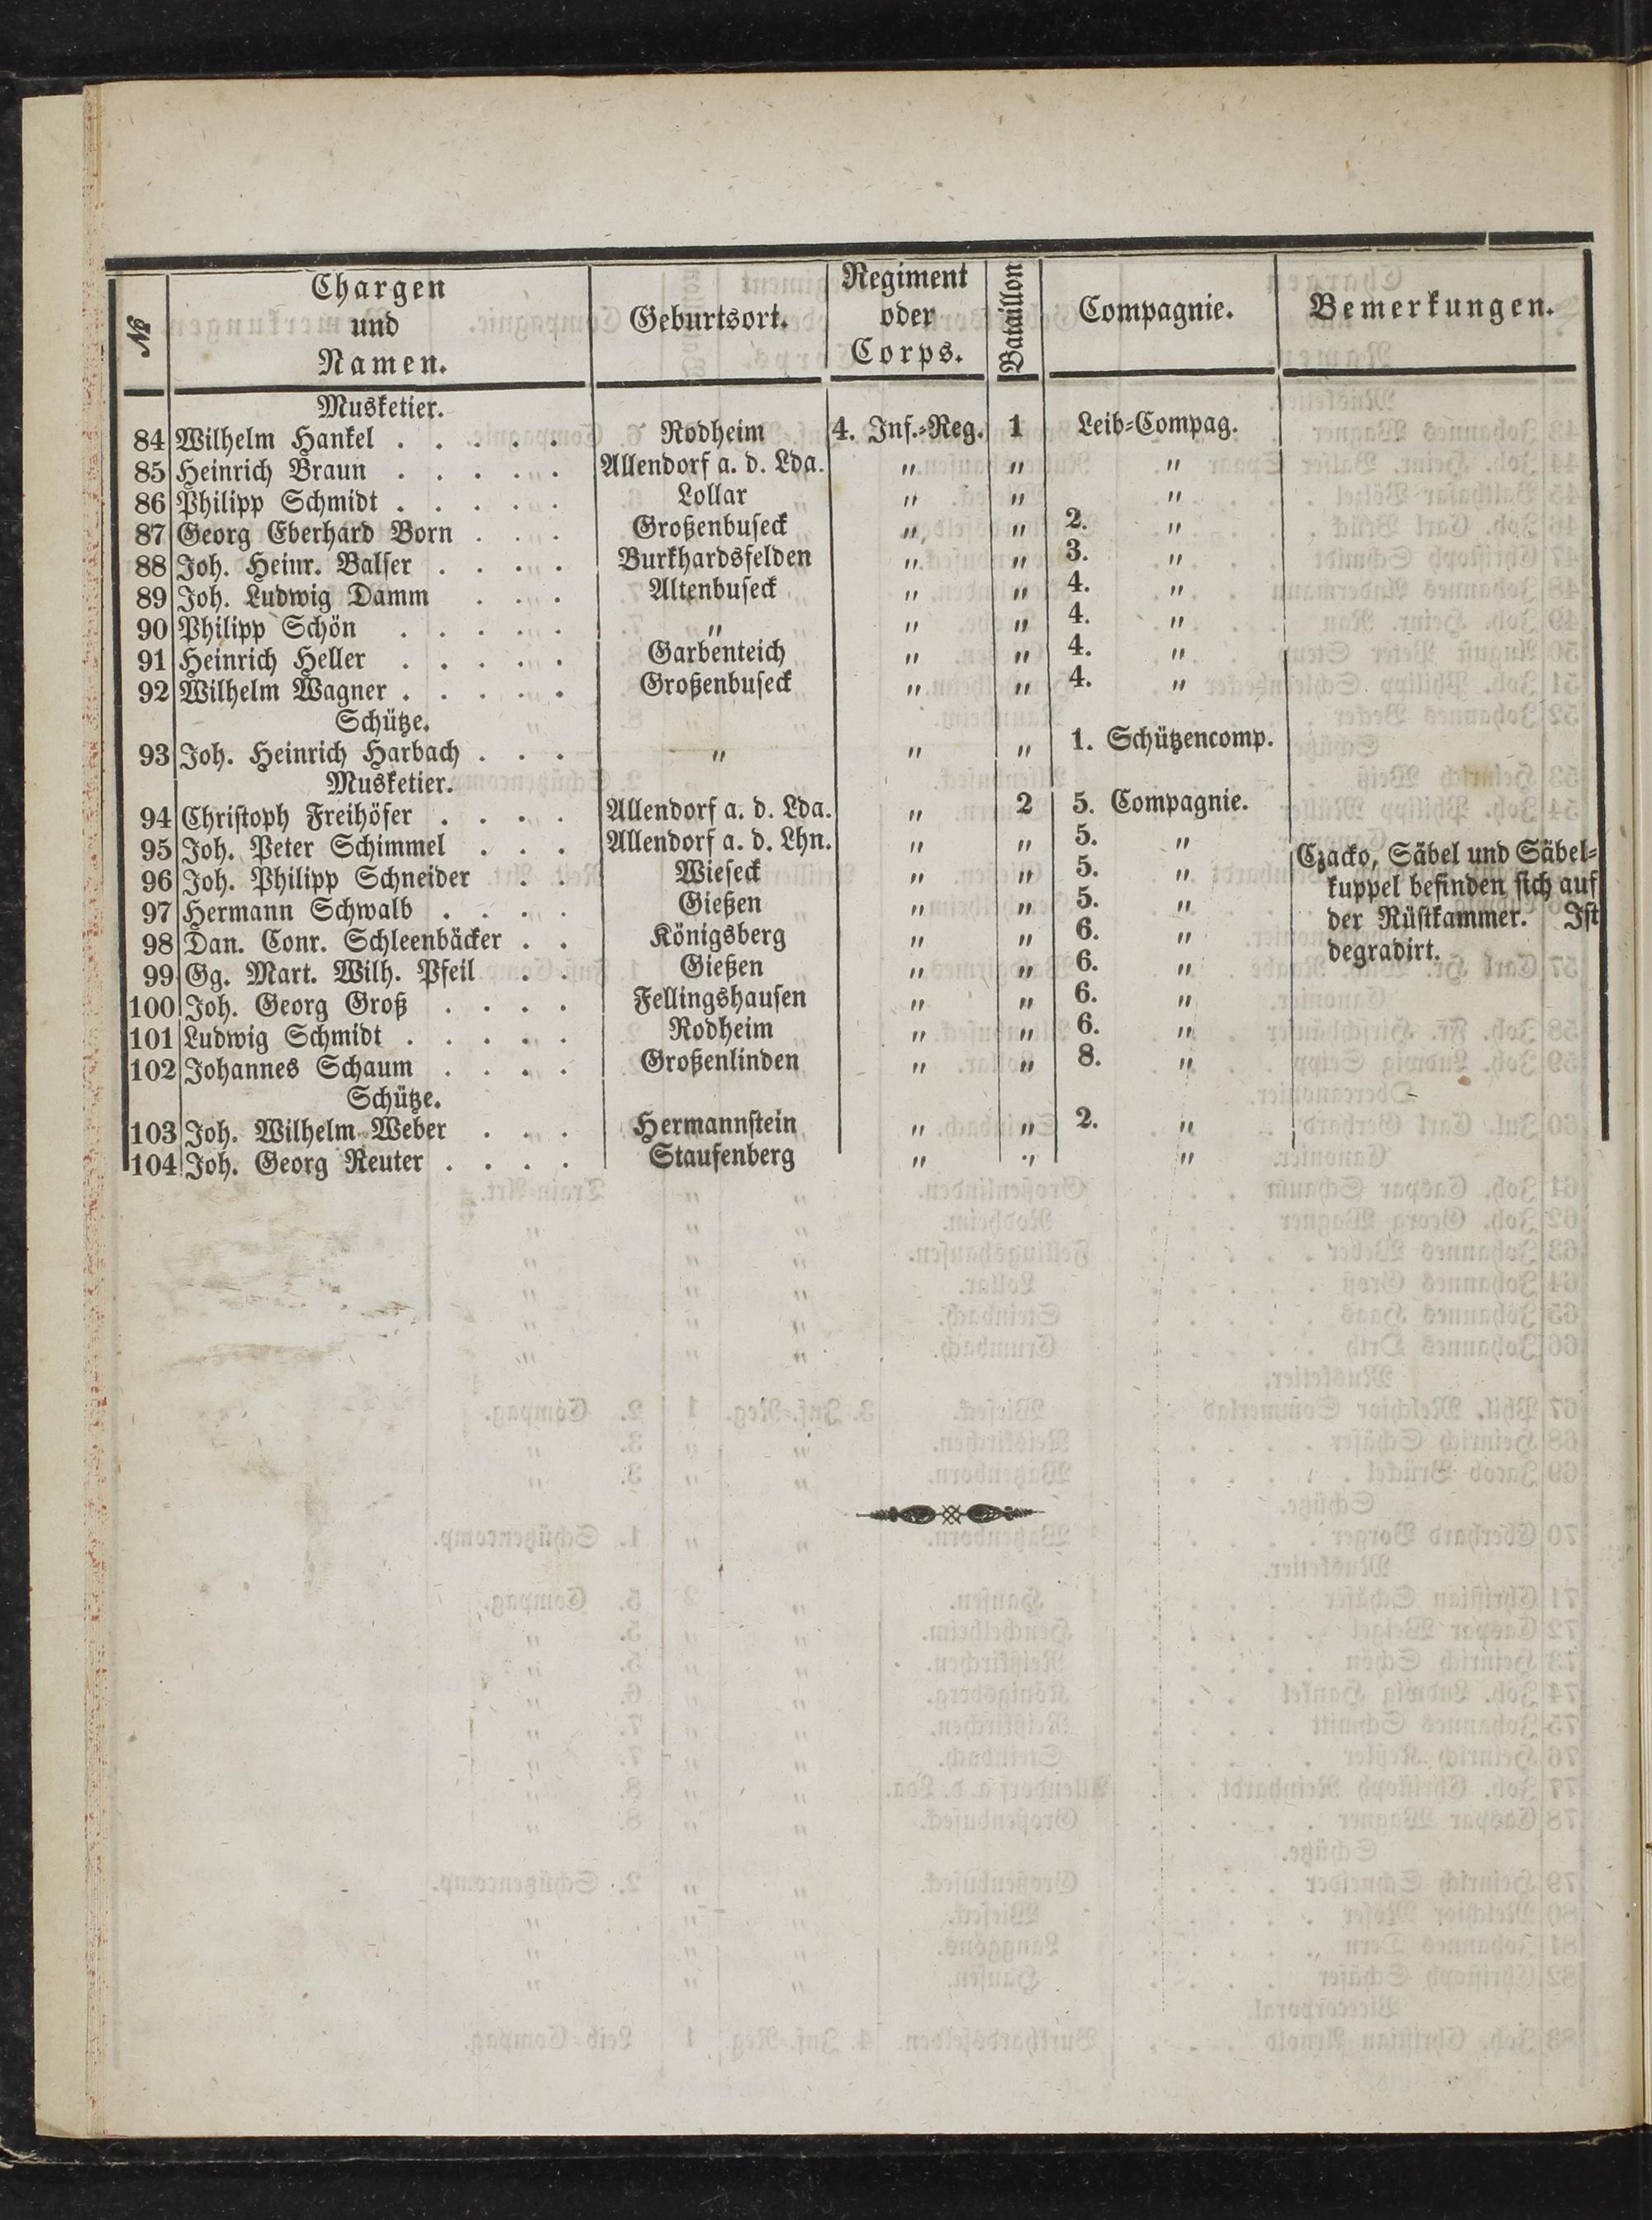 № Chargen und Namen. Geburtsort. Regiment oder Corps. Bataillon Compagnie. Bemerkungen.
Musketier.
84 Wilhelm Hankel . . . . . Rodheim 4. Inf.-Reg. 1 Leib-Compag.
85 Heinrich Braun . . . . . Allendorf a. d. Lda. " " "
86 Philipp Schmidt . . . . . Lollar " " "
87 Georg Eberhard Born . . . Großenbuseck " " 2. "
88 Joh. Heinr. Balser . . . . Burkhardsfelden " " 3. "
89 Joh. Ludwig Damm . . . Altenbuseck " " 4. "
90 Philipp Schön . . . . . " " " 4. "
91 Heinrich Heller . . . . . Garbenteich " " 4. "
92 Wilhelm Wagner . . . . . Großenbuseck " " 4. "
Schütze.
93 Joh. Heinrich Harbach . . . " " " 1. Schützencomp.
Musketier.
94 Christoph Freihöfer . . . . Allendorf a. d. Lda. " 2 5. Compagnie.
95 Joh. Peter Schimmel . . . Allendorf a. d. Lhn. " " 5. "
96 Joh. Philipp Schneider . . Wieseck " " 5. " Czacko, Säbel und Säbel-
97 Hermann Schwalb . . . . Gießen " " 5. " kuppel befinden sich auf
98 Dan. Conr. Schleenbäcker . . Königsberg " " 6. " der Rüstkammer. Ist
99 Gg. Mart. Wilh. Pfeil . . Gießen " " 6. " degradirt.
100 Joh. Georg Groß . . . . Fellingshausen " " 6. "
101 Ludwig Schmidt . . . . . Rodheim " " 6. "
102 Johannes Schaum . . . . Großenlinden " " 8. "
Schütze.
103 Joh. Wilhelm Weber . . . Hermannstein " " 2. "
104 Joh. Georg Reuter . . . . Staufenberg " " "